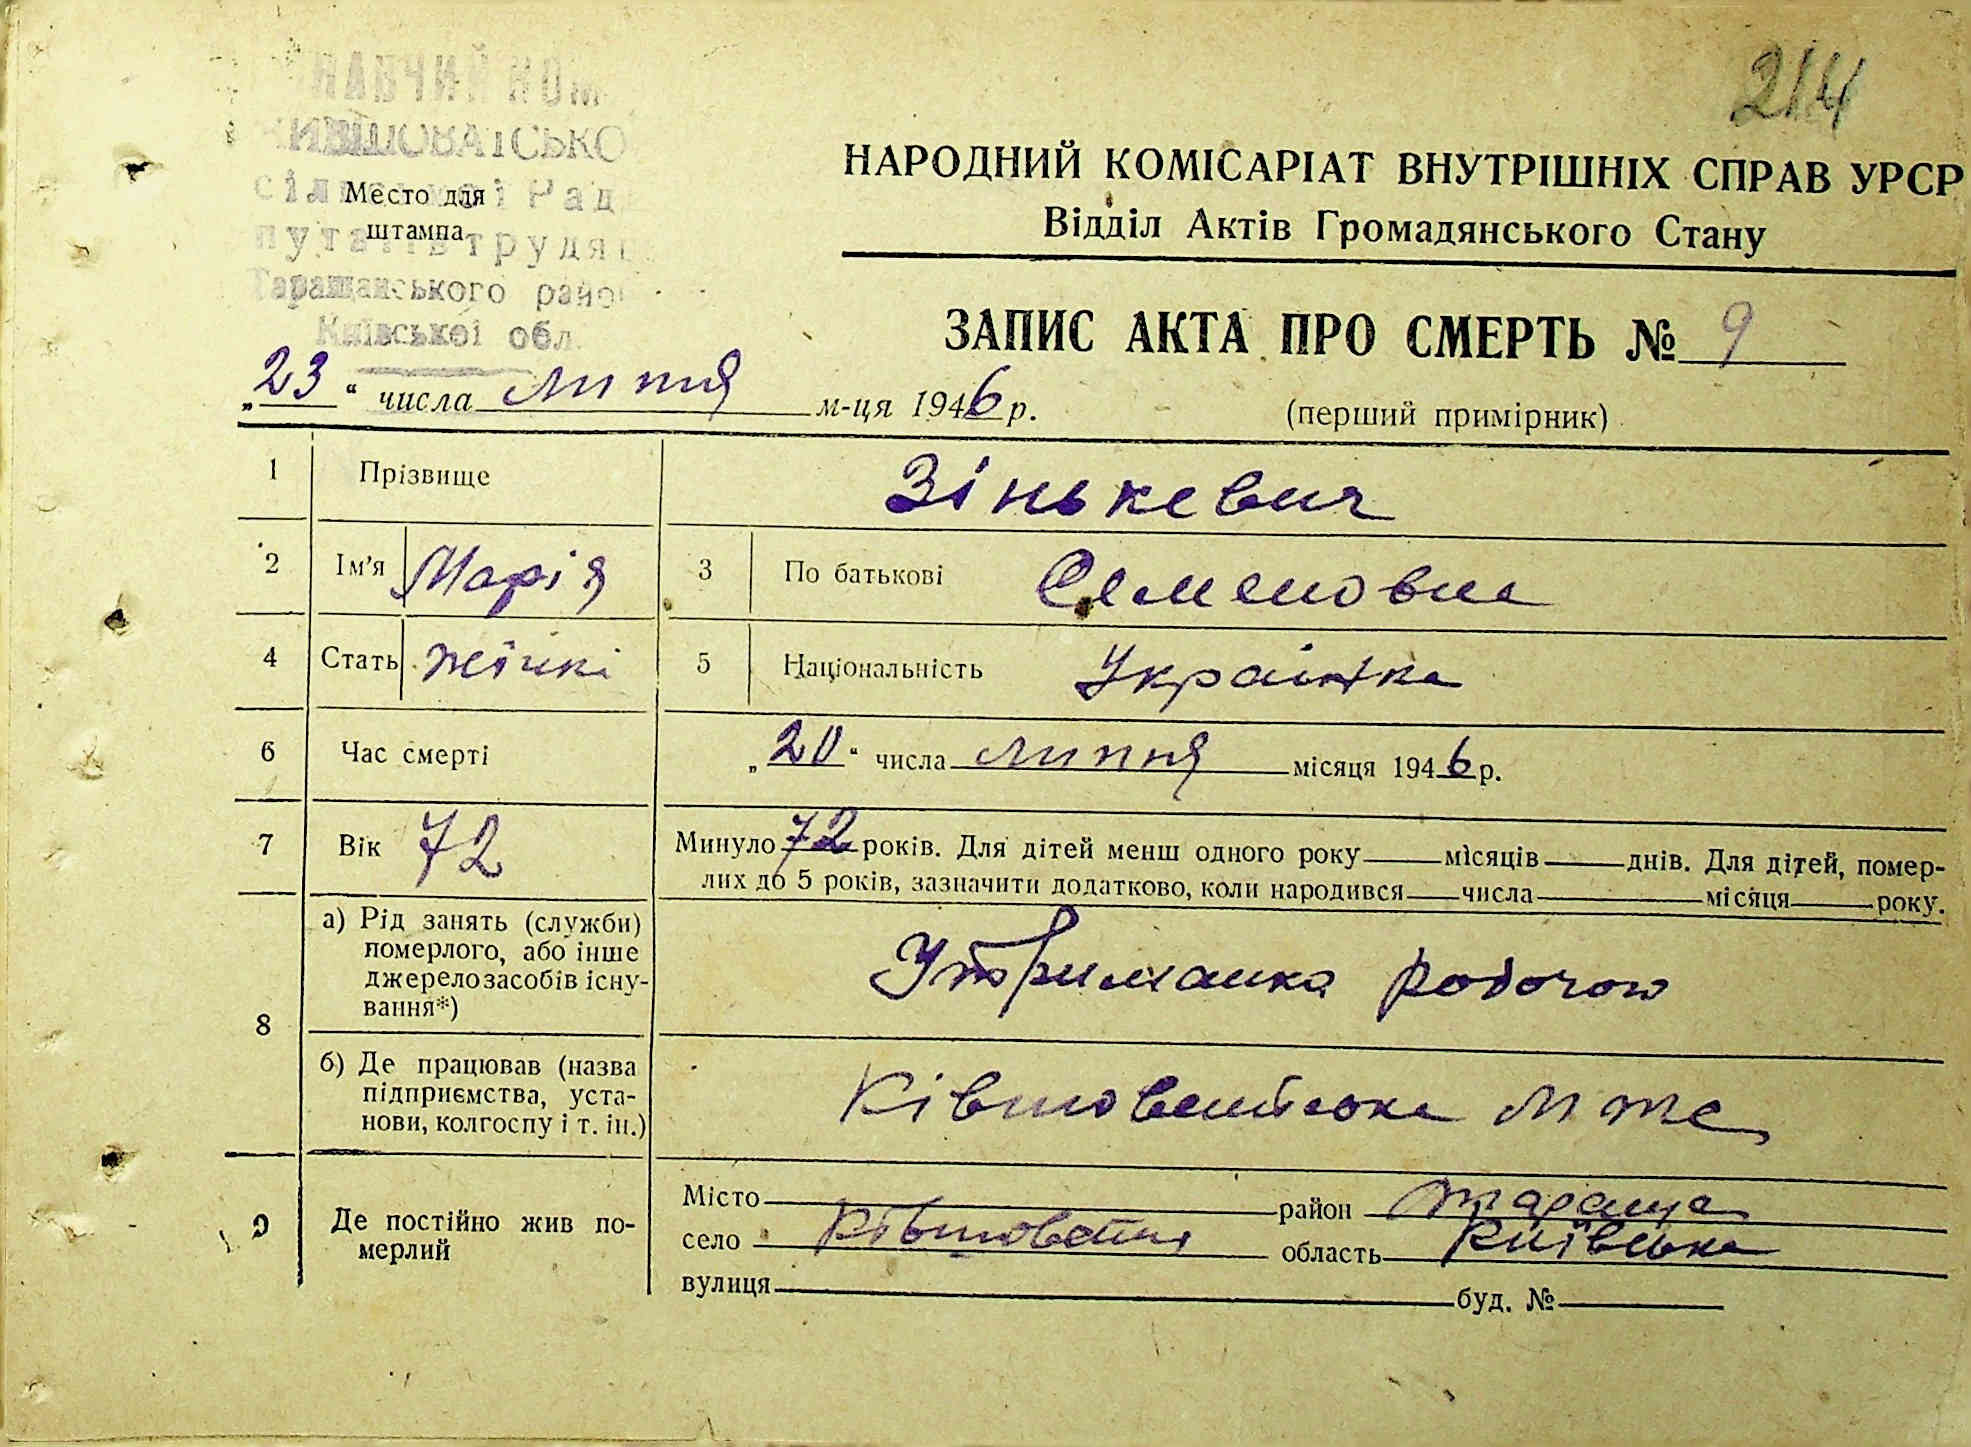 214
НАВЧИЙ КОМ
КІВШОВАТСЬКО
сільської Рад
путатів трудящ
Таращанського райо
Київської обл.
Место для
штампа
НАРОДНИЙ КОМІСАРІАТ ВНУТРІШНІХ СПРАВ УРСР
Відділ Актів Громадянського Стану
ЗАПИС АКТА ПРО СМЕРТЬ № 9
„23“ числа липня м-ця 1946 р.
(перший примірник)
1 Прізвище Зінькевич
2 Ім'я Марія 3 По батькові Семеновна
4 Стать жінкі 5 Національність Українка
6 Час смерті „20“ числа липня місяця 1946 р.
7 Вік 72 Минуло 72 років. Для дітей менш одного року місяців днів. Для дітей, помер-
лих до 5 років, зазначити додатково, коли народився числа місяця року.
8 а) Рід занять (служби)
померлого, або інше
джерело засобів існу-
вання*)
Утриманка робочого
б) Де працював (назва
підприємства, уста-
нови, колгоспу і т. ін.)
Ківшоватська МТС
9 Де постійно жив по-
мерлий
Місто район Тараща
село Ківшовата область Київська
вулиця буд. №